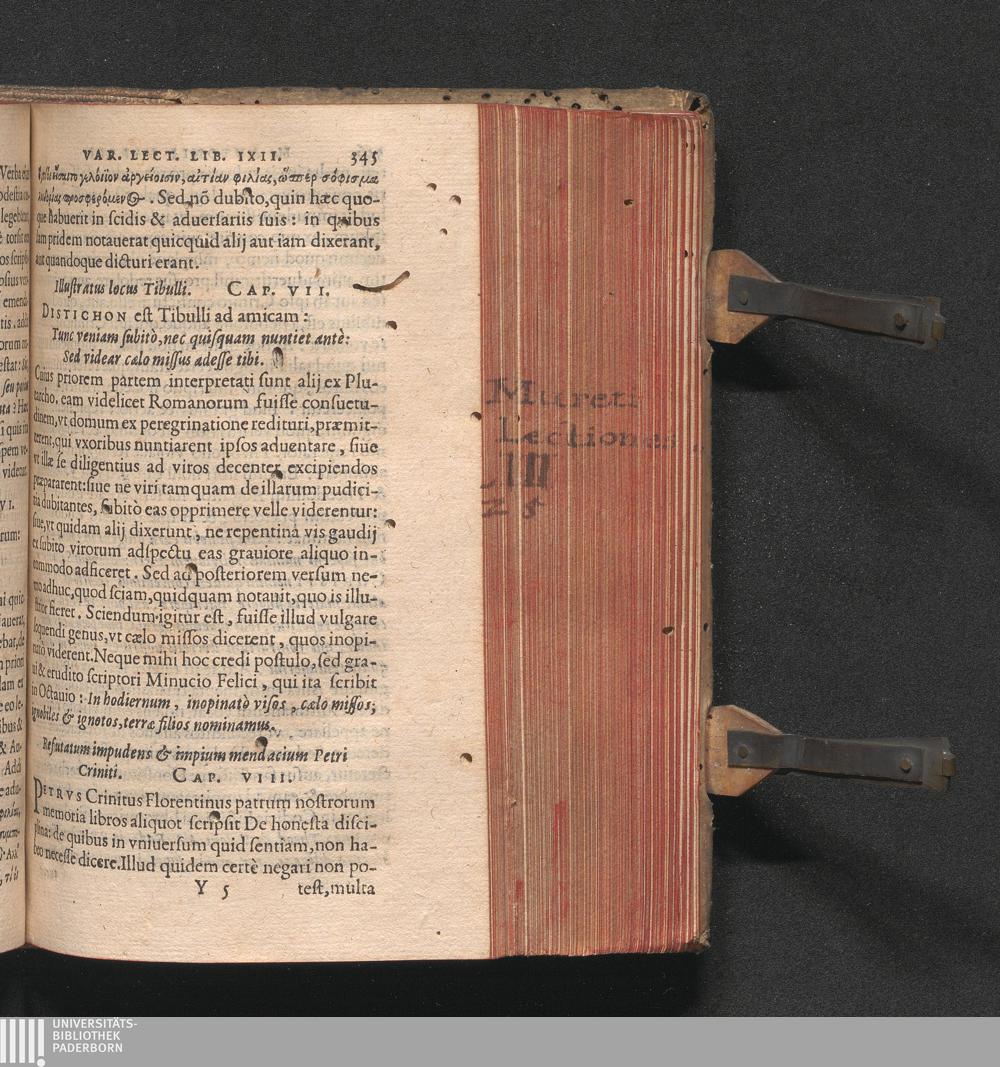 VAR. LECT. LIB. IXII. 345
γελοῖον ἀργείοισιν, αἰτίαν φιλίας, ὥσπερ σόφισμα
προσφερόμεν . Sed nõ dubito, quin hæc quo-
que habuerit in scidis & aduersariis suis: in quibus
iam pridem notauerat quicquid alij aut iam dixerant,
aut quandoque dicturi erant.
Illustratus locus Tibulli. CAP. VII.
DISTICHON est Tibulli ad amicam:
Tunc veniam subitò, nec quisquam nuntiet antè:
Sed videar cælo missus adesse tibi.
Cuius priorem partem interpretati sunt alij ex Plu-
tarcho, eam videlicet Romanorum fuisse consuetu-
dinem, vt domum ex peregrinatione redituri, præmit-
terent, qui vxoribus nuntiarent ipsos aduentare, siue
vt illæ se diligentius ad viros decenter excipiendos
præpararent: siue ne viri tamquam de illarum pudici-
tia dubitantes, subitò eas opprimere velle viderentur:
siue, vt quidam alij dixerunt, ne repentina vis gaudij
ex subito virorum adspectu eas grauiore aliquo in-
commodo adficeret. Sed ad posteriorem versum ne-
mo adhuc, quod sciam, quidquam notauit, quo is illu-
strior fieret. Sciendum igitur est, fuisse illud vulgare
loquendi genus, vt cælo missos dicerent, quos inopi-
natò viderent. Neque mihi hoc credi postulo, sed gra-
ui & erudito scriptori Minucio Felici, qui ita scribit
in Octauio: In hodiernum, inopinatò visos, cælo missos;
ignobiles & ignotos, terræ filios nominamus.
Refutatum impudens & impium mendacium Petri
Criniti. CAP. VIII.
PETRVS Crinitus Florentinus patrum nostrorum
memoria libros aliquot scripsit De honesta disci-
plina: de quibus in vniuersum quid sentiam, non ha-
beo necesse dicere. Illud quidem certè negari non po-
Y 5 test, multa
Mureti
Lectiones
III
25
UNIVERSITÄTS-
BIBLIOTHEK
PADERBORN